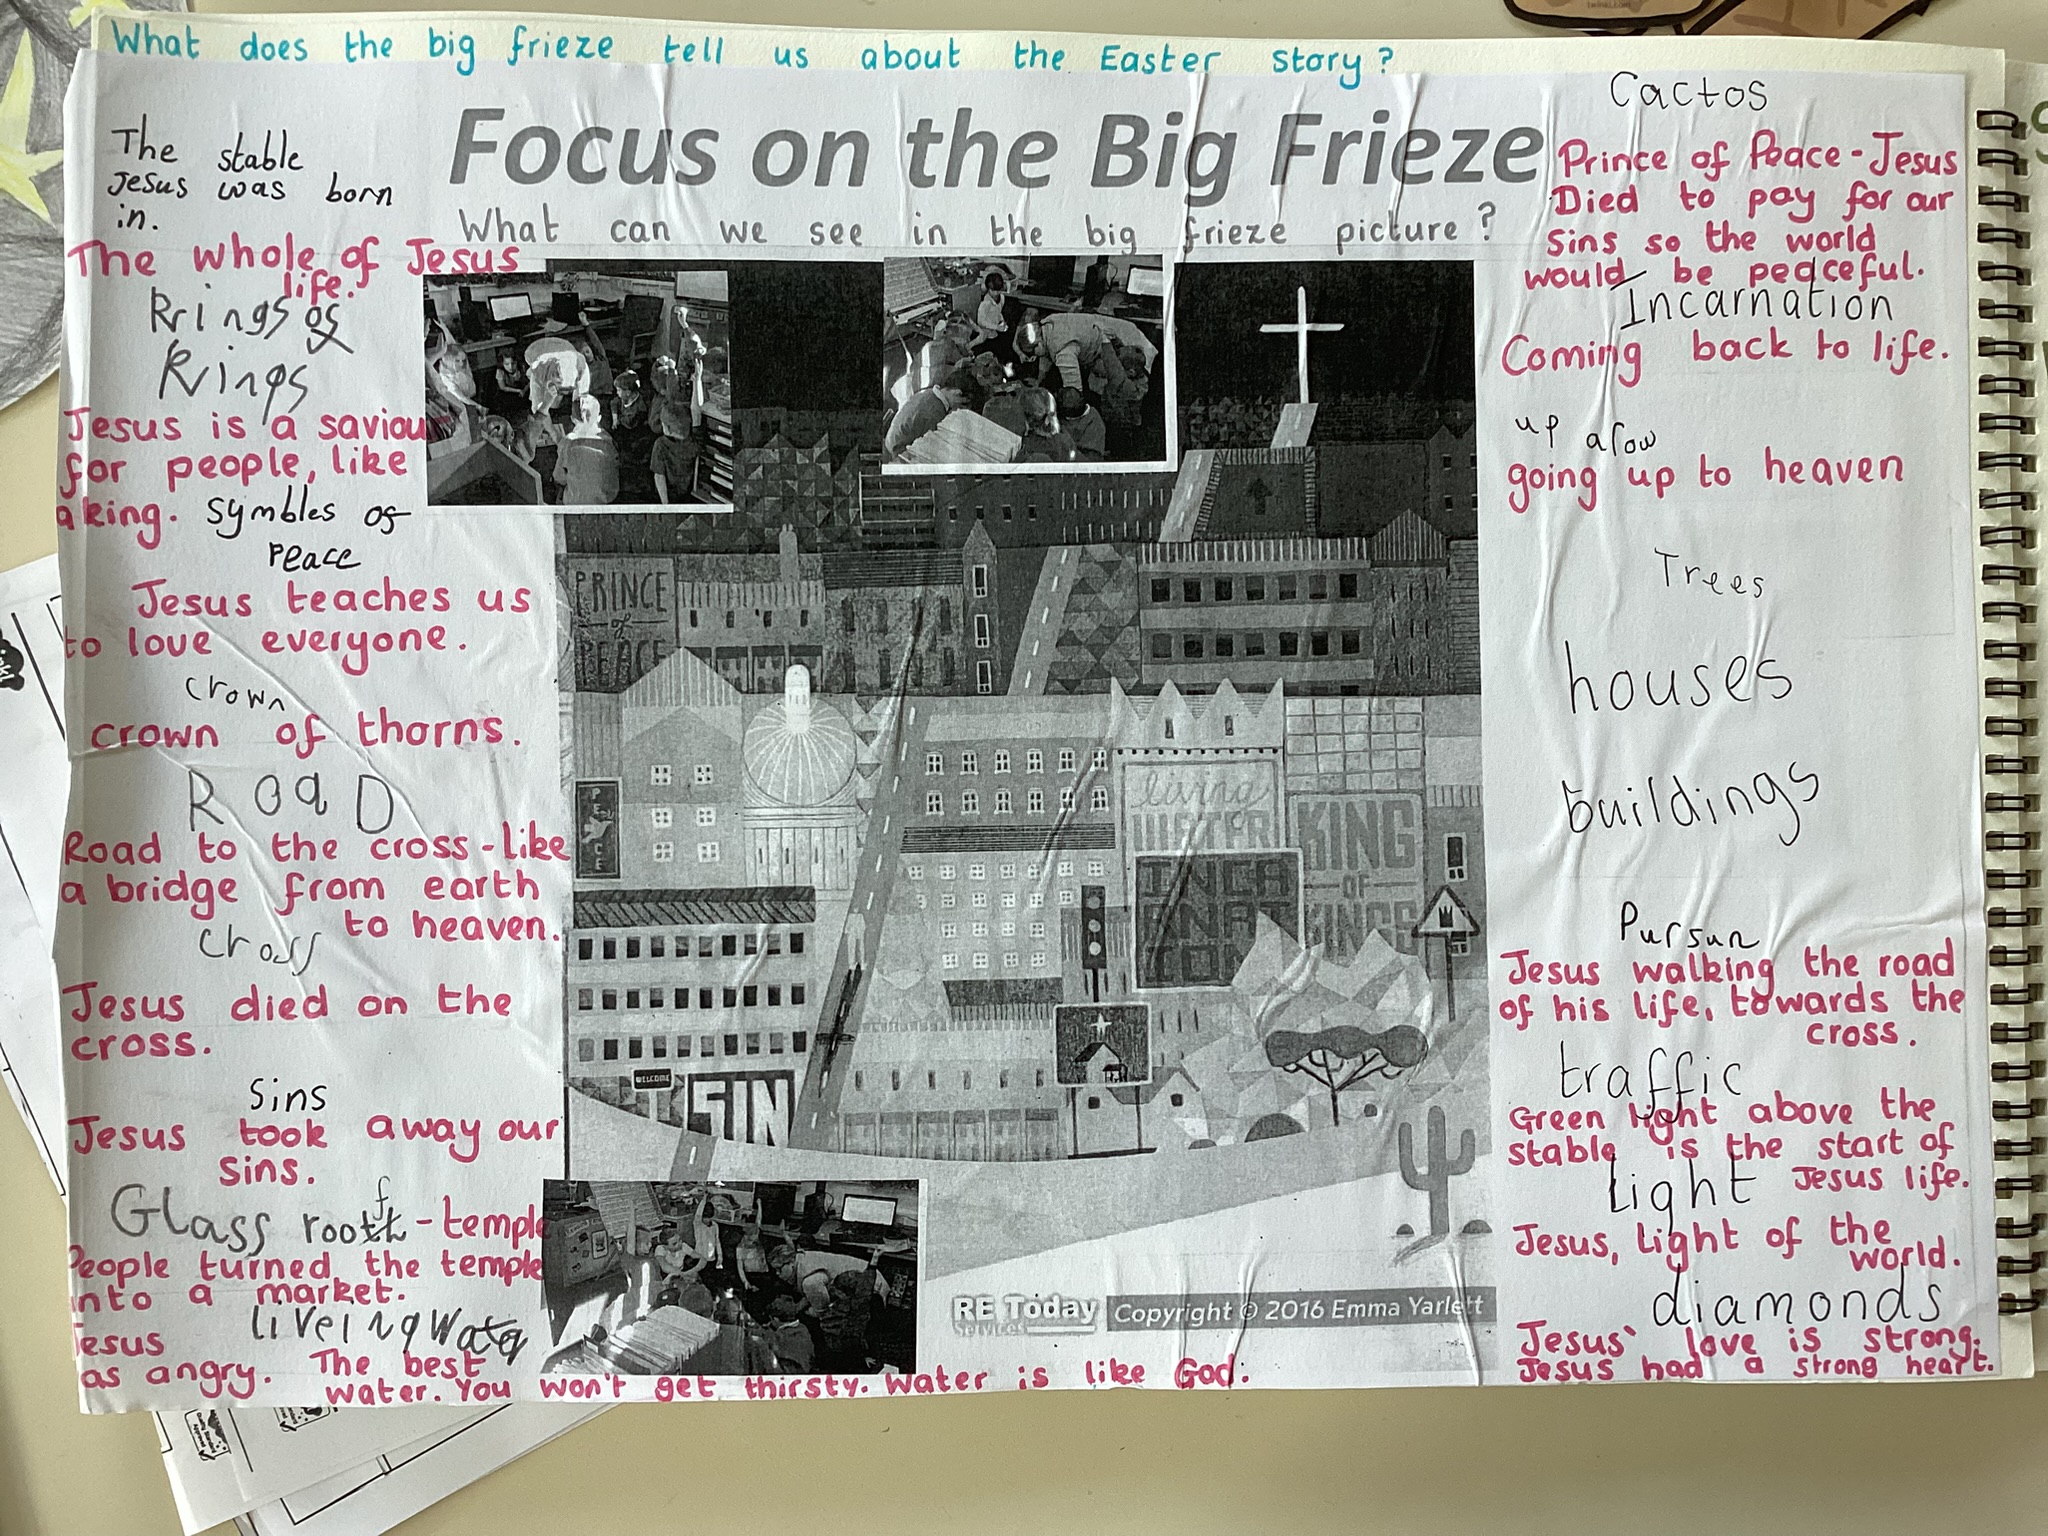 What does the big frieze tell us about the Easter story?
Focus on the Big Frieze
What can we see in the big frieze picture?
The stable
Jesus was born
in.
The whole of Jesus
life.
Krings of
Kings
Jesus is a saviou
for people, like
a king. symbles of
Peace
Jesus teaches us
to love everyone.
crown
crown of thorns.
RoaD
Road to the cross - like
a bridge from earth
to heaven.
cross
Jesus died on the
cross.
Sins
Jesus took away our
sins.
Glass roof - temple
People turned the temple
into a market.
liveing water
Jesus
as angry. The best
water. You won't get thirsty. Water is like God.
PRINCE
of
PEACE
PEACE
living
WATER
KING
OF
KINGS
INCA
RNAT
ION
WELCOME
SIN
RE Today
Services
Copyright © 2016 Emma Yarlett
Cactos
Prince of Peace - Jesus
Died to pay for our
sins so the world
would be peaceful.
Incarnation
Coming back to life.
up arow
going up to heaven
Trees
houses
buildings
Pursun
Jesus walking the road
of his life, towards the
cross.
traffic
Green light above the
stable is the start of
Jesus life.
Light
Jesus, light of the
world.
diamonds
Jesus` love is strong.
Jesus had a strong heart.